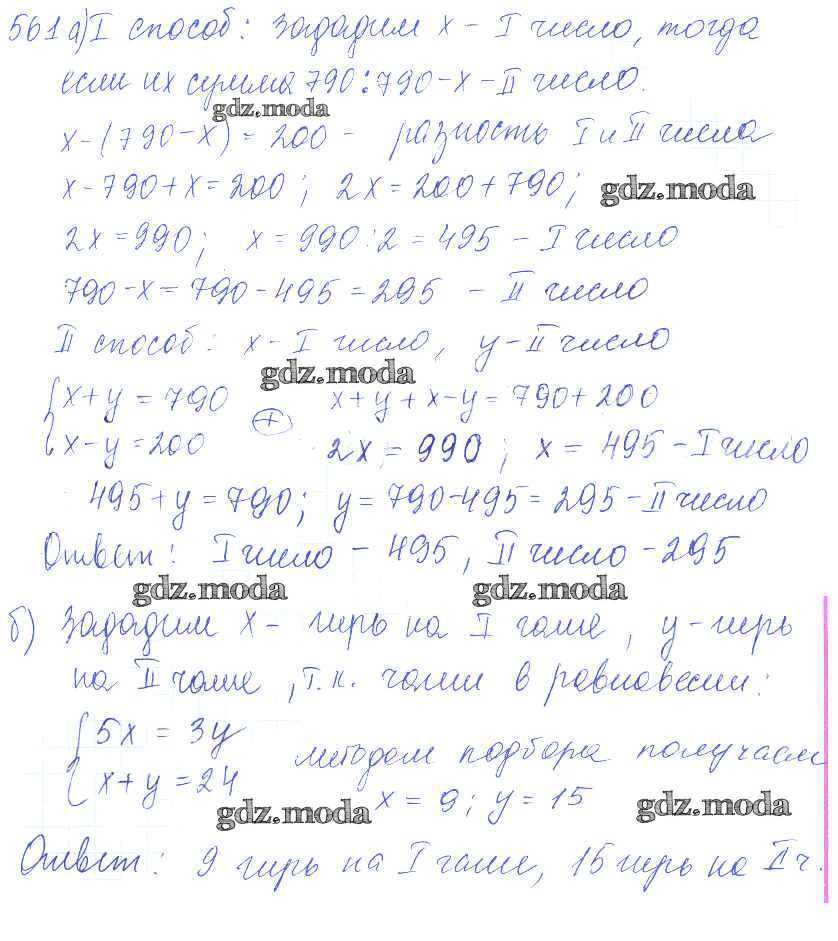 561 а) I способ: Зададим x - I число, тогда
если их сумма 790: 790-x - II число.
gdz.moda
x-(790-x) = 200 - разность I и II числа
x-790+x = 200; 2x = 200+790; gdz.moda
2x = 990; x = 990:2 = 495 - I число
790-x = 790-495 = 295 - II число
II способ: x - I число, y - II число
gdz.moda
x+y = 790 x+y+x-y = 790+200
x-y = 200 + 2x = 990; x = 495 - I число
495+y = 790; y = 790-495 = 295 - II число
Ответ: I число - 495, II число - 295
gdz.moda gdz.moda
б) Зададим x - гирь на I чаше, y - гирь
на II чаше, т.к. чаши в равновесии:
5x = 3y
методом подбора получаем
x+y = 24
gdz.moda x = 9; y = 15 gdz.moda
Ответ: 9 гирь на I чаше, 15 гирь на II ч.